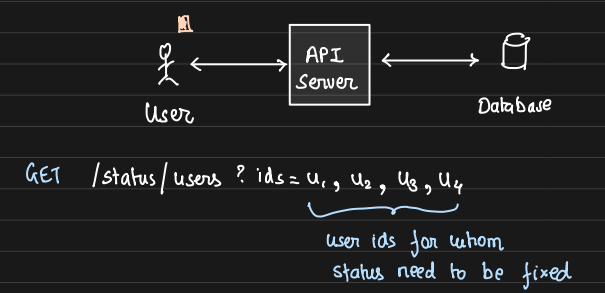 API
Server
User
Database
GET /status/users ? ids = u₁, u₂, u₃, u₄
user ids for whom
status need to be fixed